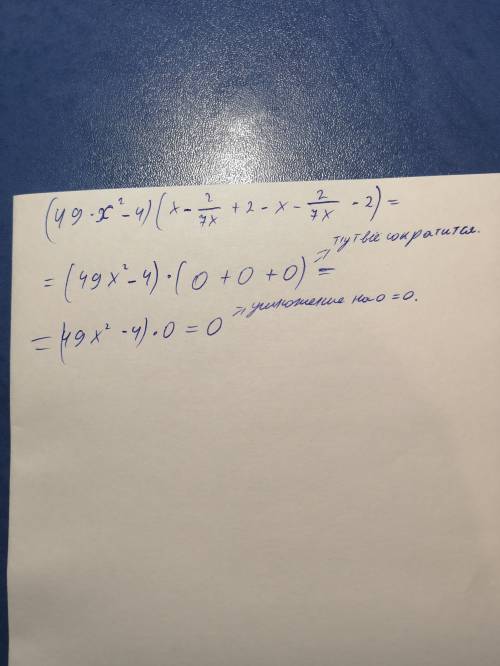 (49·x²-4)(x-2/7x+2-x-2/7x-2)=
=(49x²-4)·(0+0+0)= => тут всё сократится.
=(49x²-4)·0=0 => умножение на 0=0.